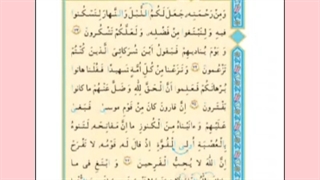 وَمِن رَّحْمَتِهِۦ جَعَلَ لَكُمُ ٱلَّيْلَ وَٱلنَّهَارَ لِتَسْكُنُوا۟
فِيهِ وَلِتَبْتَغُوا۟ مِن فَضْلِهِۦ وَلَعَلَّكُمْ تَشْكُرُونَ
وَيَوْمَ يُنَادِيهِمْ فَيَقُولُ أَيْنَ شُرَكَآءِيَ ٱلَّذِينَ كُنتُمْ
تَزْعُمُونَ وَنَزَعْنَا مِن كُلِّ أُمَّةٍ شَهِيدًا فَقُلْنَا هَاتُوا۟
بُرْهَانَكُمْ فَعَلِمُوٓا۟ أَنَّ ٱلْحَقَّ لِلَّهِ وَضَلَّ عَنْهُم مَّا كَانُوا۟
يَفْتَرُونَ إِنَّ قَارُونَ كَانَ مِن قَوْمِ مُوسَىٰ فَبَغَىٰ
عَلَيْهِمْ وَءَاتَيْنَاهُ مِنَ ٱلْكُنُوزِ مَآ إِنَّ مَفَاتِحَهُۥ لَتَنُوٓأُ
بِٱلْعُصْبَةِ أُو۟لِى ٱلْقُوَّةِ إِذْ قَالَ لَهُۥ قَوْمُهُۥ لَا تَفْرَحْ
إِنَّ ٱللَّهَ لَا يُحِبُّ ٱلْفَرِحِينَ وَٱبْتَغِ فِيمَآ